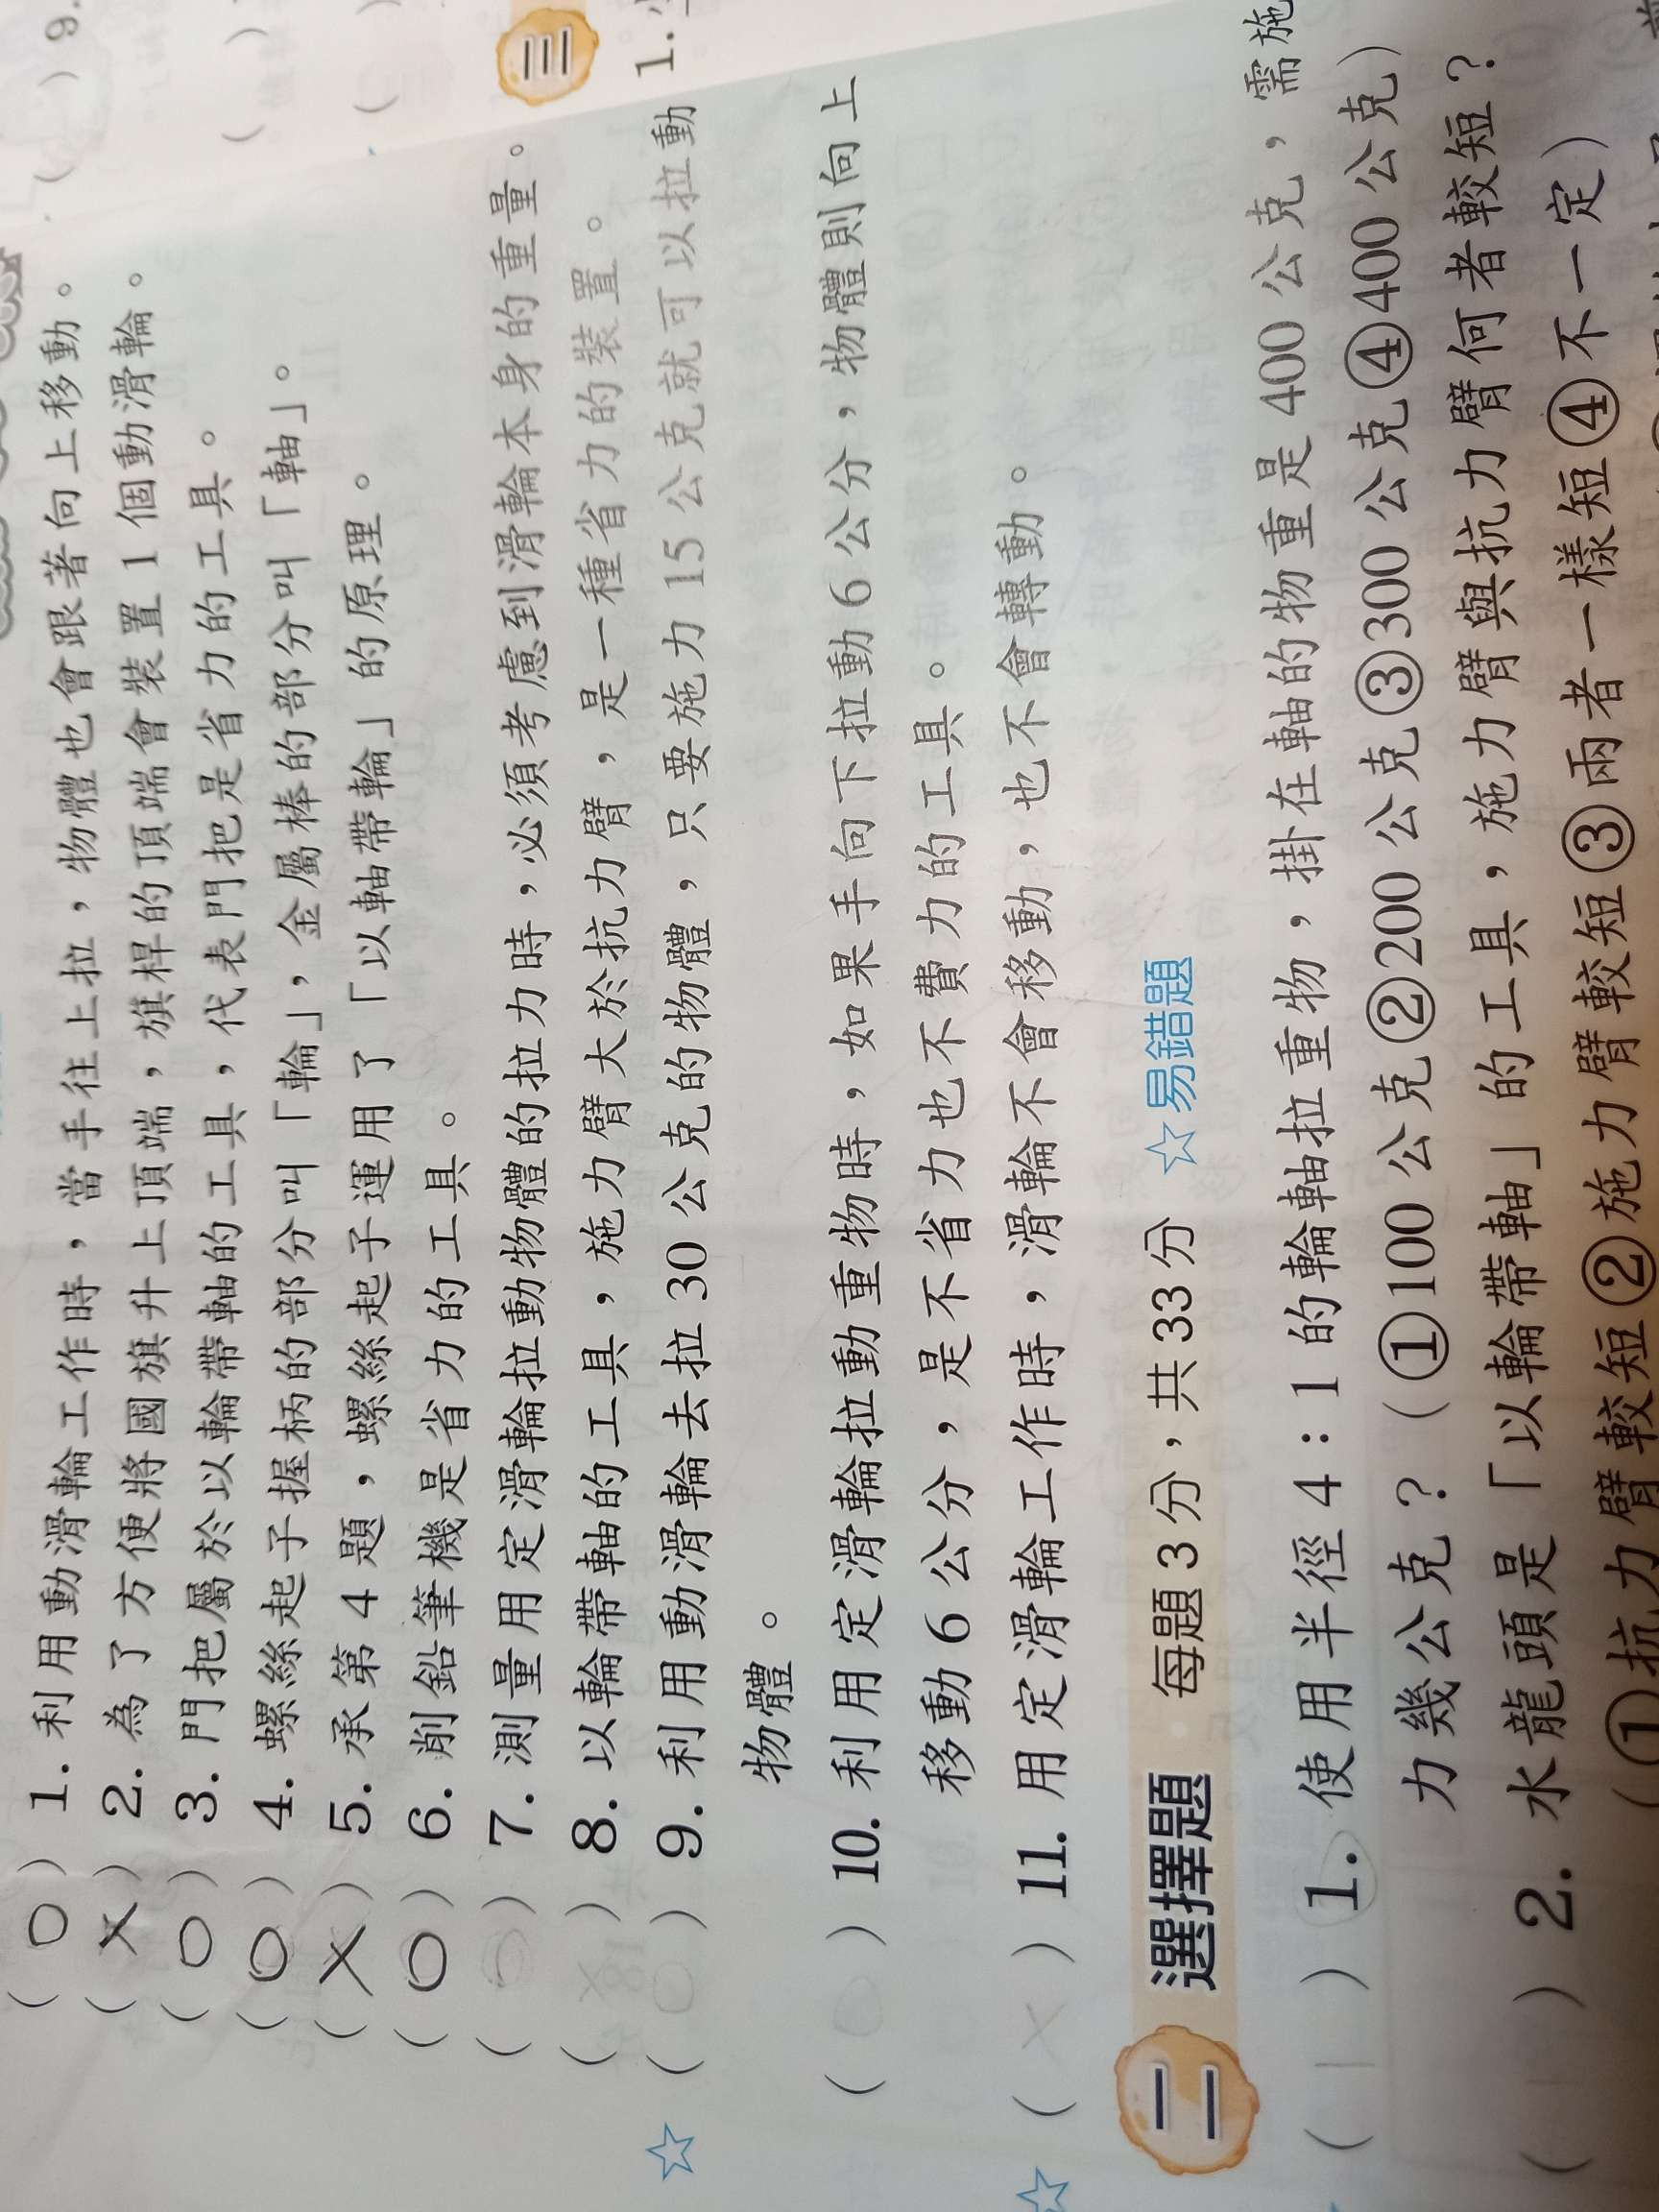 (○) 1. 利用動滑輪工作時，當手往上拉，物體也會跟著向上移動。
(×) 2. 為了方便將國旗升上頂端，旗桿的頂端會裝置 1 個動滑輪。
(○) 3. 門把屬於以輪帶軸的工具，代表門把是省力的工具。
(○) 4. 螺絲起子握柄的部分叫「輪」，金屬棒的部分叫「軸」。
(×) 5. 承第 4 題，螺絲起子運用了「以軸帶輪」的原理。
(○) 6. 削鉛筆機是省力的工具。
(○) 7. 測量用定滑輪拉動物體的拉力時，必須考慮到滑輪本身的重量。
(×) 8. 以輪帶軸的工具，施力臂大於抗力臂，是一種省力的裝置。
☆(○) 9. 利用動滑輪去拉 30 公克的物體，只要施力 15 公克就可以拉動
物體。
(○) 10. 利用定滑輪拉動重物時，如果手向下拉動 6 公分，物體則向上
移動 6 公分，是不省力也不費力的工具。
☆(×) 11. 用定滑輪工作時，滑輪不會移動，也不會轉動。
二 選擇題 每題 3 分，共 33 分 ☆易錯題
(1) 1. 使用半徑 4：1 的輪軸拉重物，掛在軸的物重是 400 公克，需施
力幾公克？（①100 公克②200 公克③300 公克④400 公克）
( ) 2. 水龍頭是「以輪帶軸」的工具，施力臂與抗力臂何者較短？
（①抗力臂較短②施力臂較短③兩者一樣短④不一定）
( ) 9.
( )
( )
三
1.